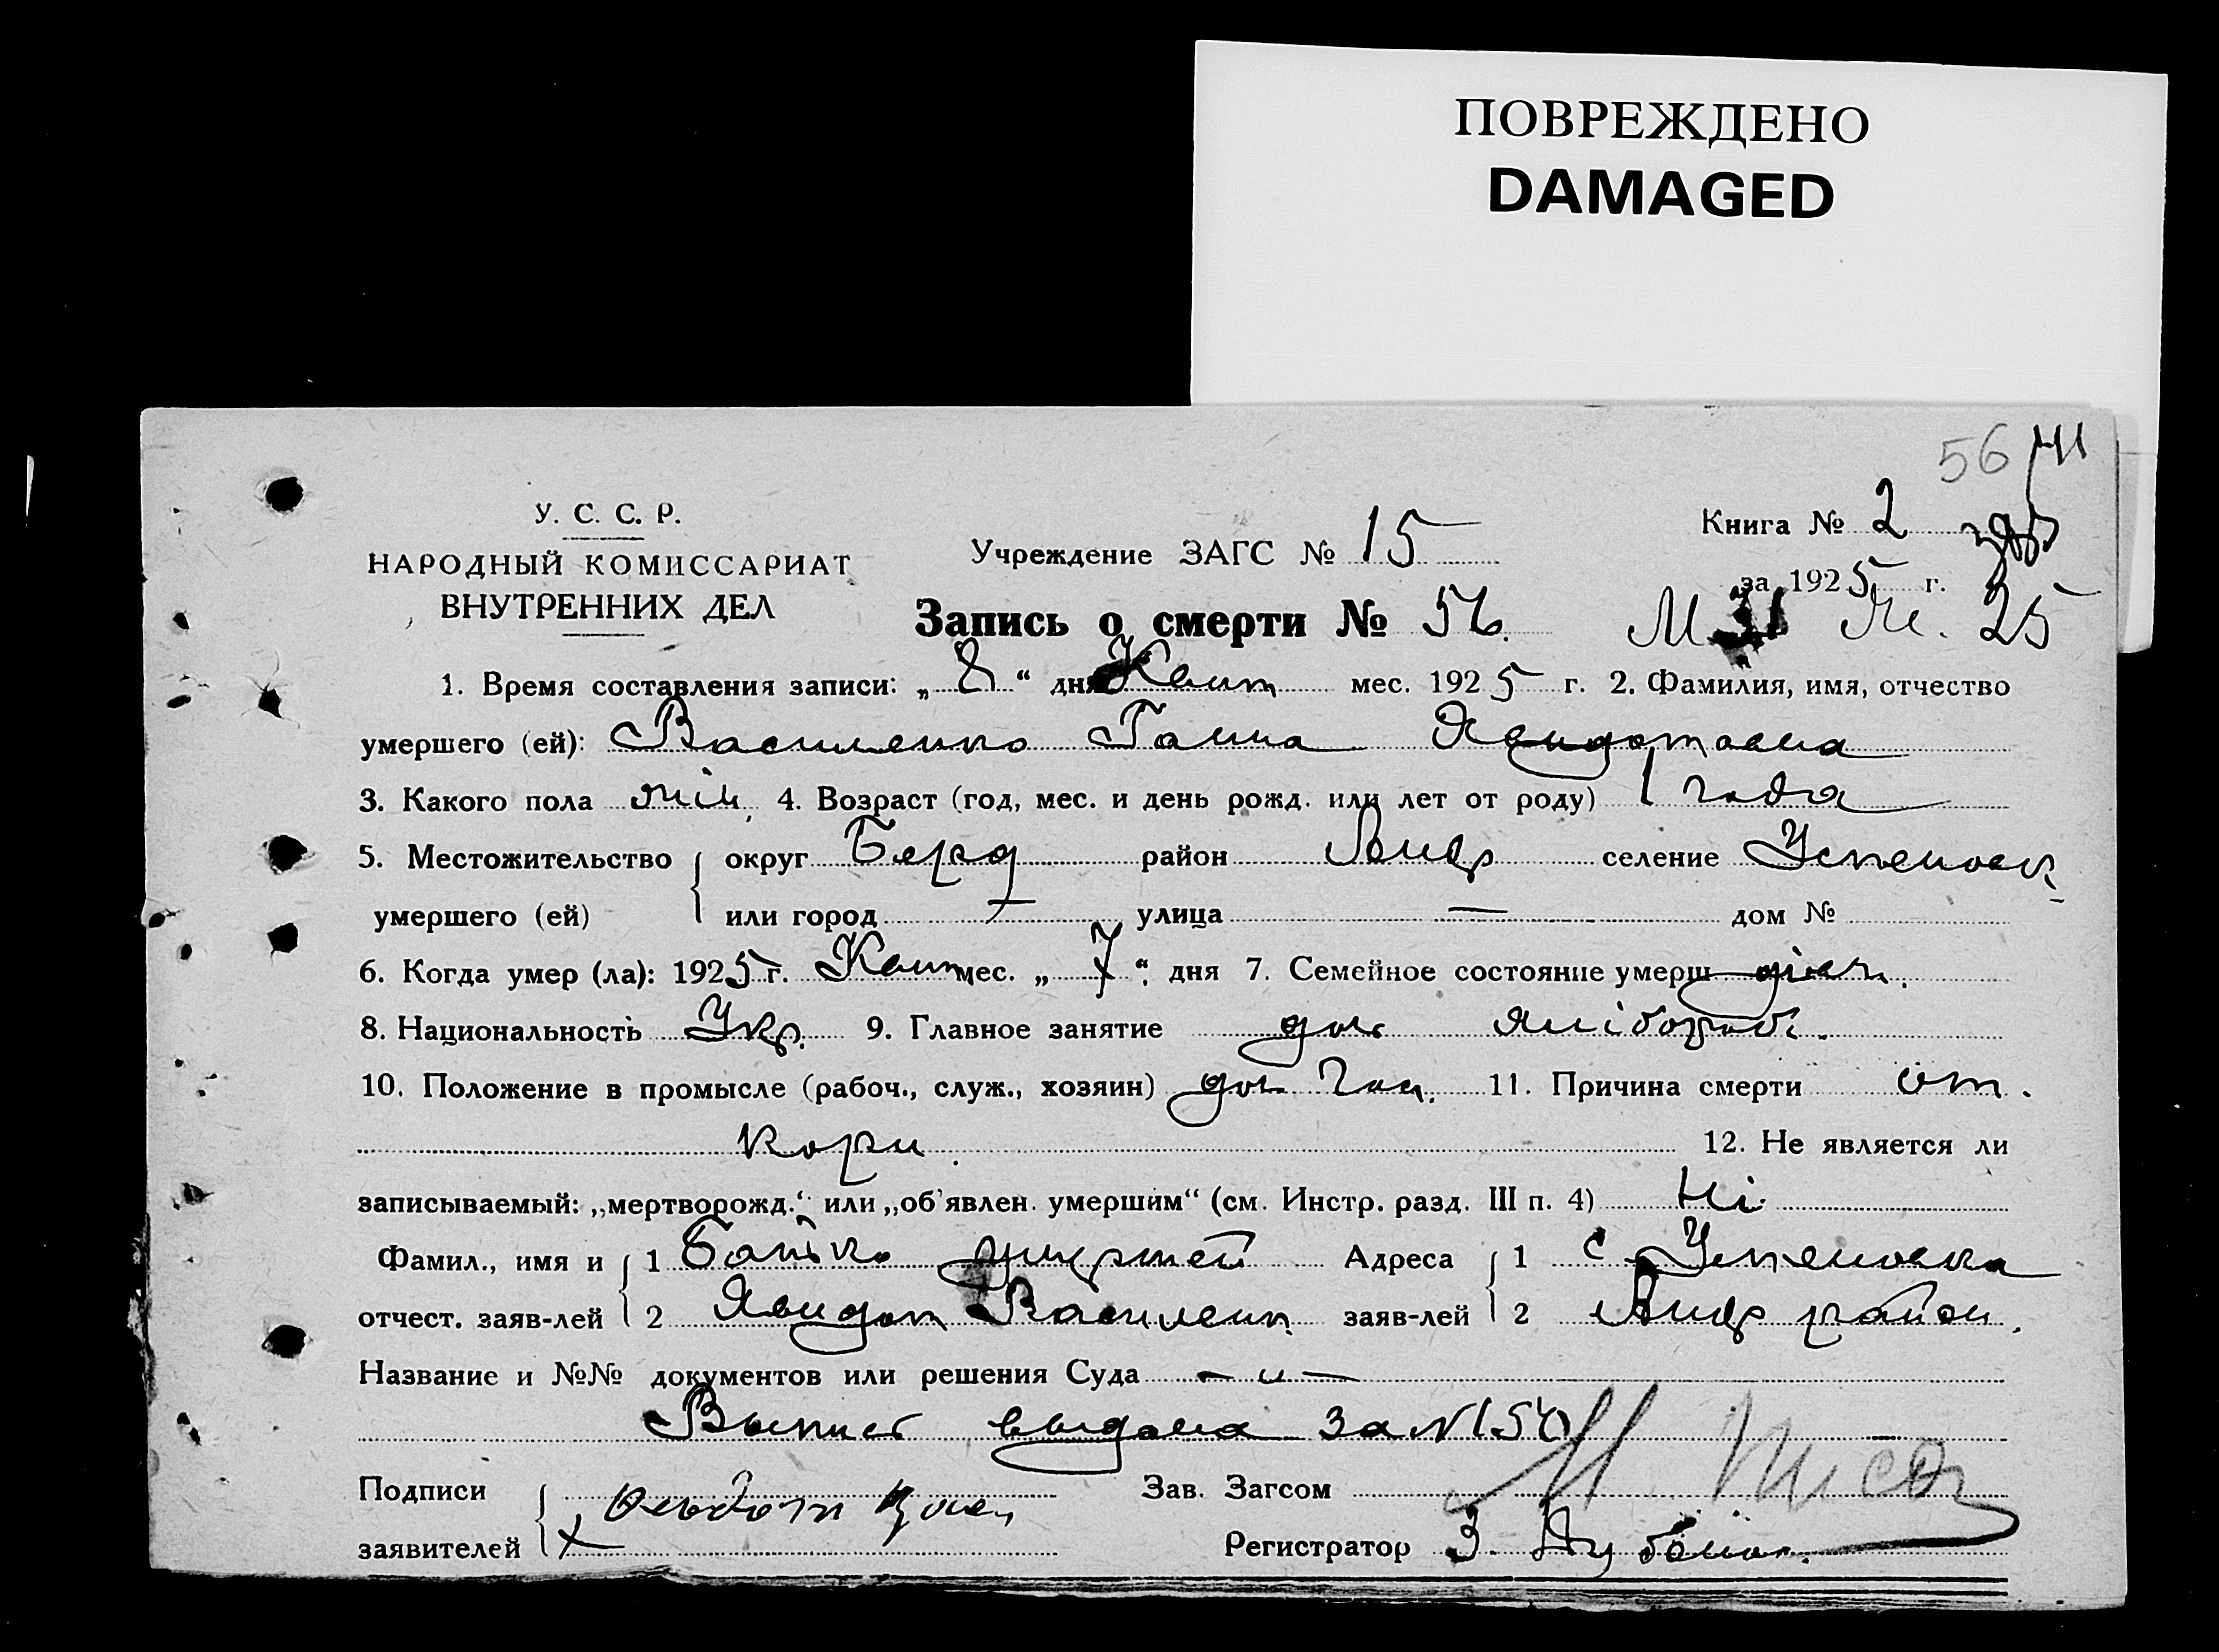 ПОВРЕЖДЕНО
DAMAGED
56
У. С. С. Р.
НАРОДНЫЙ КОМИССАРИАТ
ВНУТРЕННИХ ДЕЛ
Учреждение ЗАГС № 15
Книга № 2
за 1925 г.
Запись о смерти № 56.
25
1. Время составления записи: „ 8 “ дня Квит мес. 1925 г. 2. Фамилия, имя, отчество
умершего (ей): Василенко Ганна Явидотовна
3. Какого пола жін. 4. Возраст (год, мес. и день рожд. или лет от роду) 1 года
5. Местожительство умершего (ей) округ Бярд район Андр селение Успеновк
или город — улица — дом №
6. Когда умер (ла): 1925 г. Квит мес. „ 7 “ дня 7. Семейное состояние умерш дівч.
8. Национальность Укр. 9. Главное занятие доч хлібороб.
10. Положение в промысле (рабоч., служ., хозяин) доч Хоз. 11. Причина смерти от.
кори.
12. Не является ли
записываемый: „мертворожд.“ или „об'явлен. умершим“ (см. Инстр. разд. III п. 4) Ні
Фамил., имя и отчест. заяв-лей 1 Батько умершей Адреса заяв-лей 1 с. Успеновка
2 Явидот Василенк. 2 Андр район.
Название и №№ документов или решения Суда — „ —
Выпись выдана за №
Подписи заявителей
Зав. Загсом
Регистратор З.